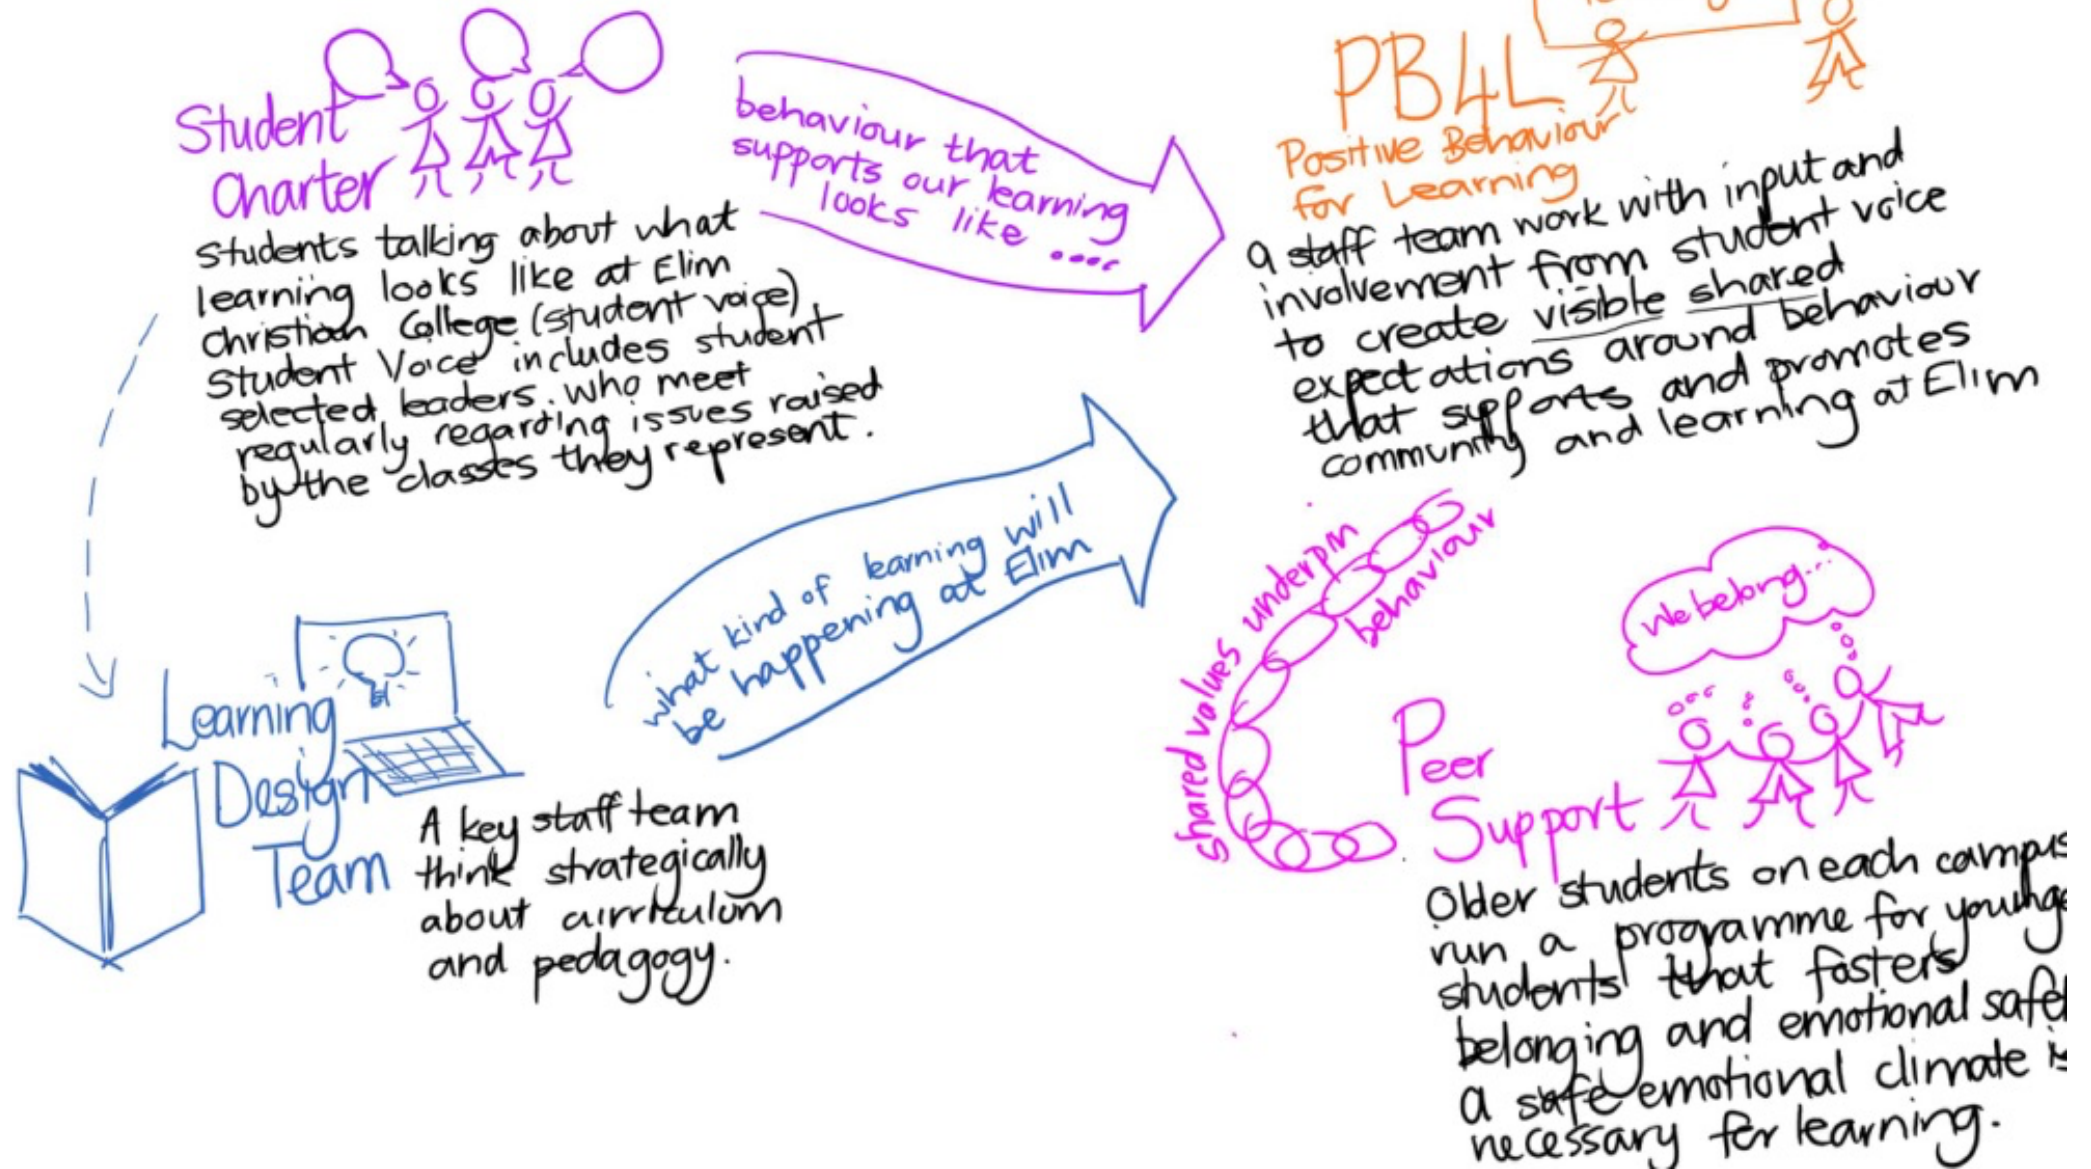 Student
Charter
students talking about what
learning looks like at Elim
christian College (student voice)
student Voice includes student
selected leaders. who meet
regularly regarding issues raised
by the classes they represent.
behaviour that
supports our learning
looks like ....
PB4L
Positive Behaviour
for Learning
a staff team work with input and
involvement from student voice
to create visible shared
expectations around behaviour
that supports and promotes
community and learning at Elim
what kind of learning will
be happening at Elim
Learning
Design
Team
A key staff team
think strategically
about curriculum
and pedagogy.
shared values underpin
behaviour
We belong...
Peer
Support
Older students on each campus
run a programme for younge
students that fosters
belonging and emotional safe
a safe emotional climate is
necessary for learning.